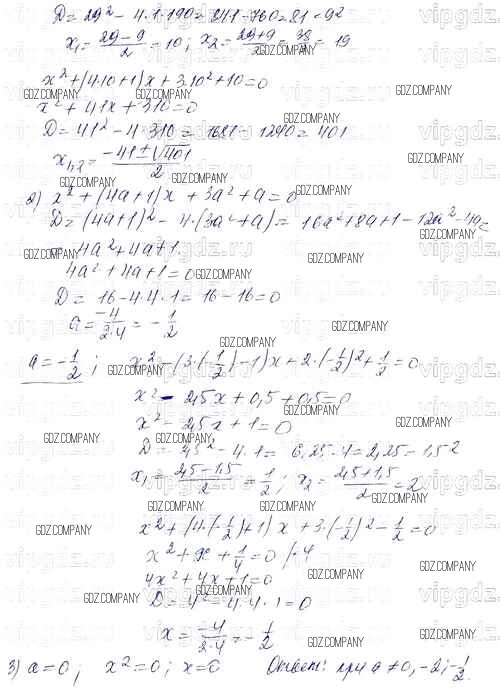 D = 29² - 4·1·190 = 841 - 760 = 81 = 9²
x₁ = (29-9)/2 = 10; x₂ = (29+9)/2 = 38/2 = 19
x² + (4·10+1)x + 3·10² + 10 = 0
x² + 41x + 310 = 0
D = 41² - 4·310 = 1681 - 1240 = 401
x₁,₂ = (-41±√401)/2
2) x² + (4a+1)x + 3a² + a = 0
D = (4a+1)² - 4·(3a²+a) = 16a² + 8a + 1 - 12a² - 4a =
= 4a² + 4a + 1.
4a² + 4a + 1 = 0
D = 16 - 4·4·1 = 16 - 16 = 0
a = -4/(2·4) = -1/2
a = -1/2; x² - (3·(-1/2)-1)x + 2·(-1/2)² + 1/2 = 0
x² - 2,5x + 0,5 + 0,5 = 0
x² - 2,5x + 1 = 0
D = 2,5² - 4·1 = 6,25 - 4 = 2,25 = 1,5²
x₁ = (2,5-1,5)/2 = 1/2; x₂ = (2,5+1,5)/2 = 2
x² + (4·(-1/2)+1)x + 3·(-1/2)² - 1/2 = 0
x² + x + 1/4 = 0 /·4
4x² + 4x + 1 = 0
D = 4² - 4·4·1 = 0
x = -4/(2·4) = -1/2
3) a = 0; x² = 0; x = 0 Ответ: при a ≠ 0, -2; -1/2.
GDZ.COMPANY
vipgdz.ru